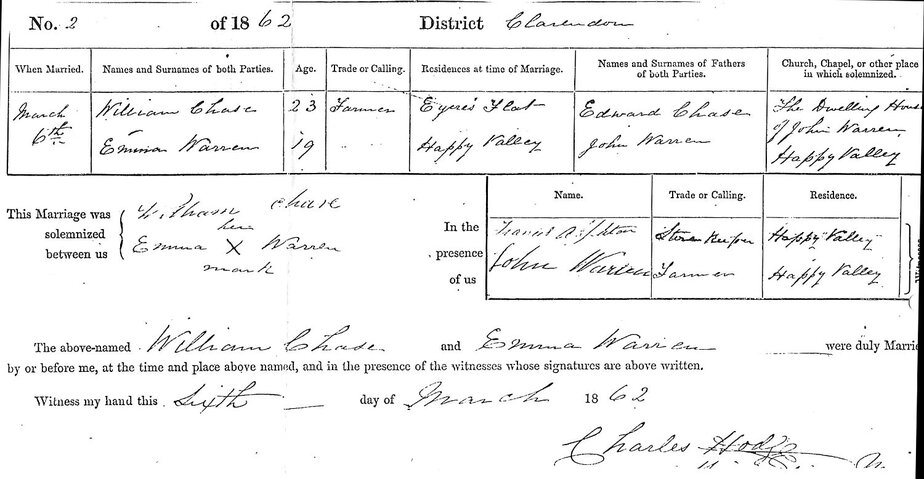 No. 2 of 1862 District Clarendon
When Married. Names and Surnames of both Parties. Age. Trade or Calling. Residences at time of Marriage. Names and Surnames of Fathers of both Parties. Church, Chapel, or other place in which solemnized.
March William Chase 23 Farmer Eyre's Flat Edward Chase The Dwelling Hous
6th Emma Warren 19 Happy Valley John Warren of John Warren
Happy Valley
Name. Trade or Calling. Residence.
This Marriage was solemnized between us
William Chase
her
Emma X Warren
mark
In the presence of us
Store Keeper Happy Valley
John Warren Farmer Happy Valley
The above-named William Chase and Emma Warren were duly Marrie
by or before me, at the time and place above named, and in the presence of the witnesses whose signatures are above written.
Witness my hand this Sixth day of March 1862
Charles Hodge